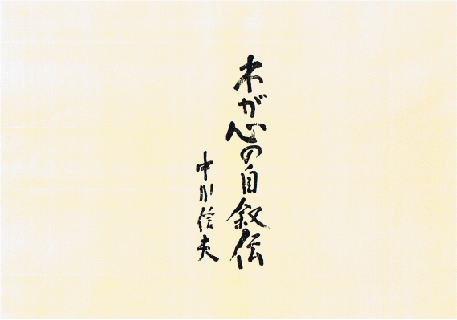 わが心の自叙伝
中川信夫